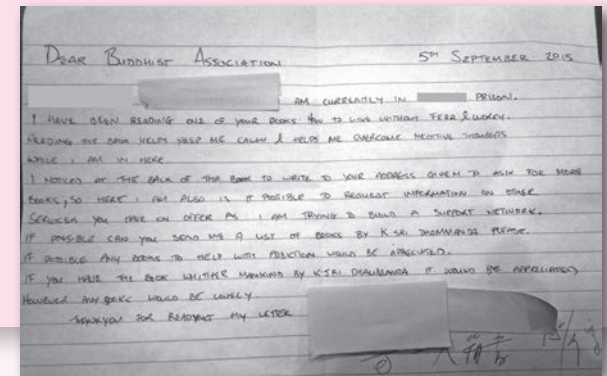 DEAR BUDDHIST ASSOCIATION 5TH SEPTEMBER 2015
AM CURRENTLY IN PRISON.
I HAVE BEEN READING ONE OF YOUR BOOKS HOW TO LIVE WITHOUT FEAR & WORRY.
READING THE BOOK HELPS KEEP ME CALM & HELPS ME OVERCOME NEGITIVE THOUGHTS
WHILE I AM IN HERE.
I NOTICED AT THE BACK OF THE BOOK TO WRITE TO YOUR ADDRESS GIVEN TO ASK FOR MORE
BOOKS, SO HERE I AM ALSO IS IT POSSIBLE TO REQUEST INFORMATION ON OTHER
SERVICES YOU HAVE ON OFFER AS I AM TRYING TO BUILD A SUPPORT NETWORK.
IF POSSIBLE CAN YOU SEND ME A LIST OF BOOKS BY K SRI DHAMMANDA PLEASE.
IF POSSIBLE ANY BOOKS TO HELP WITH ADDICTION WOULD BE APPRECIATED.
IF YOU HAVE THE BOOK WHITHER MANKIND BY K SRI DHAMMANDA IT WOULD BE APPRECIATED
HOWEVER ANY BOOKS WOULD BE LOVELY.
THANKYOU FOR READING MY LETTER